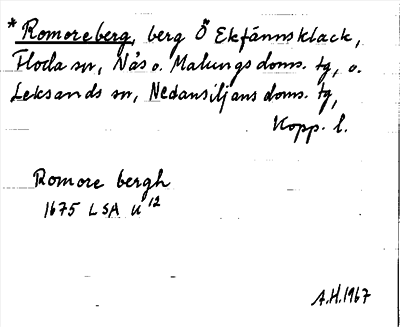 * Romoreberg, berg Ö Ekfännsklack,
Floda sn, Nås o. Malungs doms. tg, o.
Leksands sn, Nedansiljans doms. tg,
Kopp. l.
Romore bergh
1675 LSA U 12
A.H. 1967